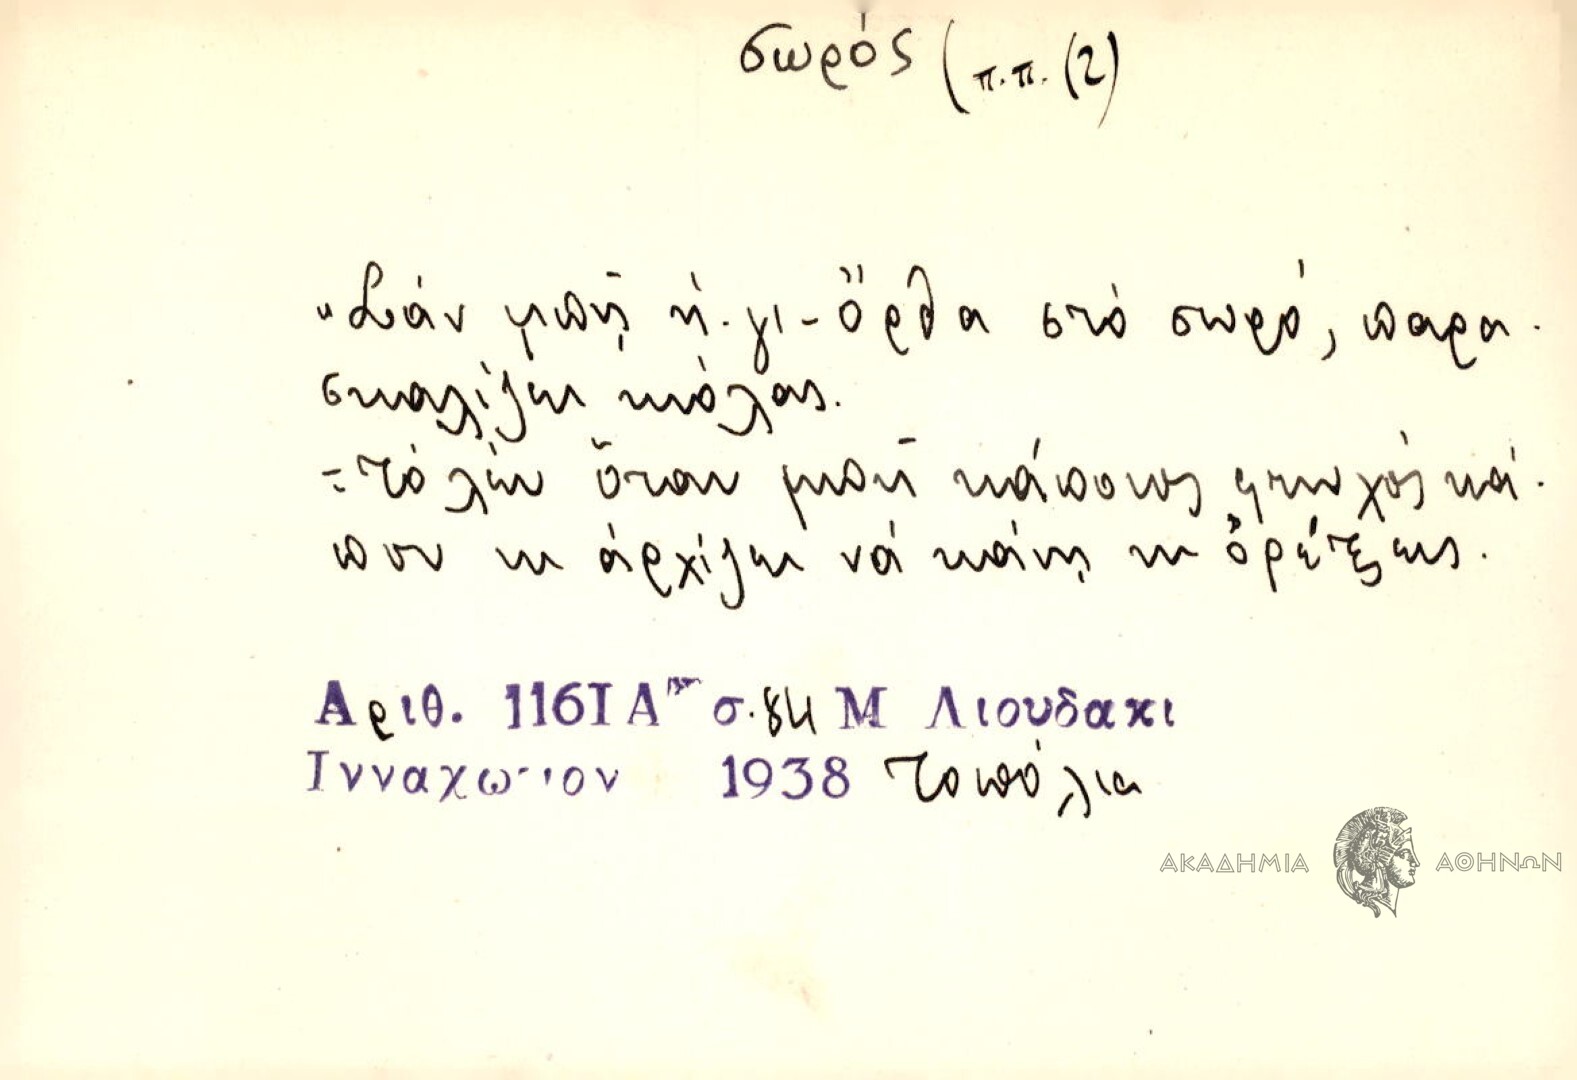 σωρός (π.π. (2)
"Σάν μπῇ ἡ γι-ὄρθα στό σωρό, παρα-
σκαλίζει κιόλας.
=τό λέν ὅταν μπῆ κάποιος φτωχός κά-
που κι ἀρχίζει νά κάνῃ κι ὀρέξεις.
Αριθ. 1161 Α σ. 84 Μ Λιουδακι
Ινναχωριον 1938 Τοπόλια
ΑΚΑΔΗΜΙΑ ΑΘΗΝΩΝ